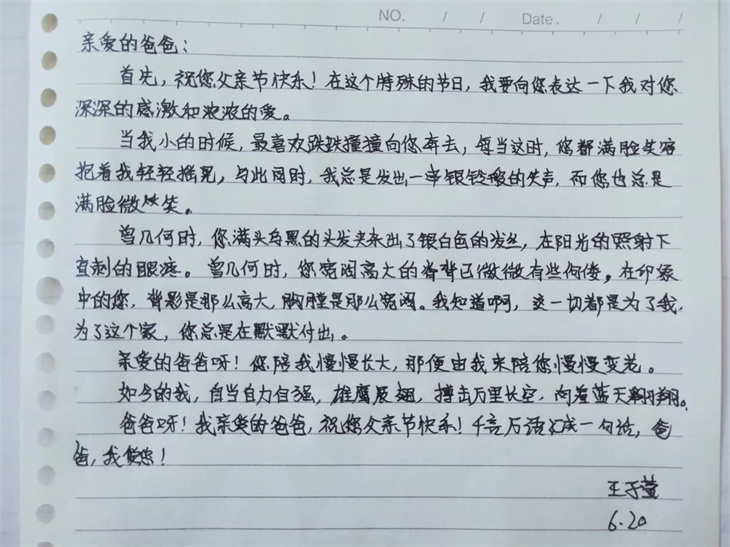 NO. / / Date. / / /
亲爱的爸爸:
首先,祝您父亲节快乐!在这个特殊的节日,我要向您表达一下我对您
深深的感激和浓浓的爱。
当我小的时候,最喜欢跌跌撞撞向您奔去,每当这时,您都满脸笑容
抱着我轻轻摇晃,与此同时,我总是发出一串银铃般的笑声,而您也总是
满脸微笑。
曾几何时,您满头乌黑的头发夹杂出了银白色的发丝,在阳光的照射下
直刺的眼疼。曾几何时,您宽阔高大的脊背已微微有些佝偻,在印象
中的您,背影是那么高大,胸膛是那么宽阔。我知道啊,这一切都是为了我,
为了这个家,您总是在默默付出。
亲爱的爸爸呀!您陪我慢慢长大,那便由我来陪您慢慢变老。
如今的我,自当自力自强,雄鹰展翅,搏击万里长空,向着蓝天翱翔。
爸爸呀!我亲爱的爸爸,祝您父亲节快乐!千言万语汇成一句话,爸
爸,我爱您!
王子萱
6.20